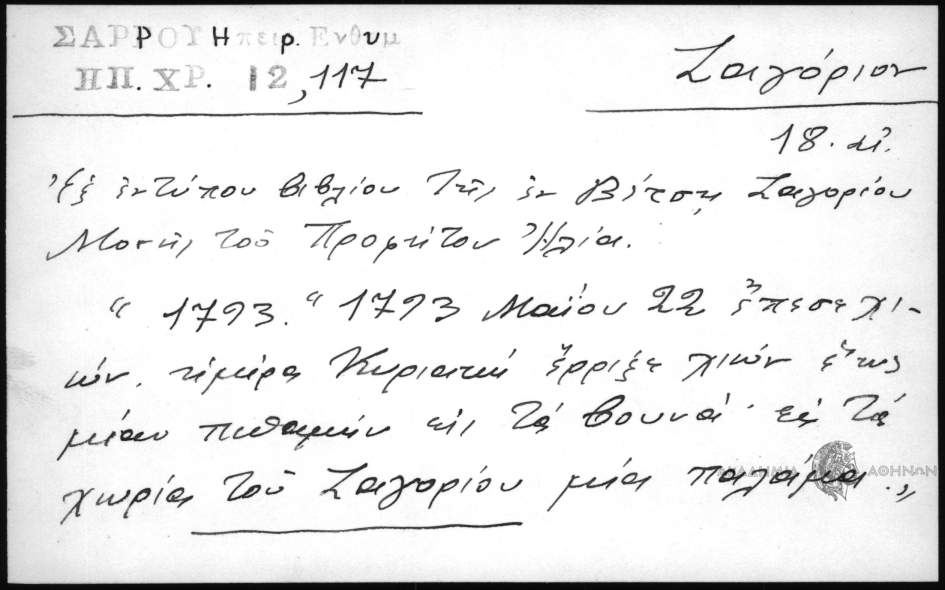 ΣΑΡΡΟΥ Ηπειρ. Ενθυμ
ΗΠ. ΧΡ. 12, 117
Ζαγόριον
18. αἰ.
Ἐξ ἐντύπου βιβλίου τῆς ἐν Βίτσῃ Ζαγορίου
Μονῆς τοῦ Προφήτου Ἠλία.
" 1793. " 1793 Μαΐου 22 ἔπεσε χι-
ών. ἡμέρα Κυριακή ἔρριξε χιών ἕως
μίαν πιθαμήν εἰς τά βουνά· εἰς τά
χωρία τοῦ Ζαγορίου μία παλάμα."
ΑΚΑΔΗΜΙΑ ΑΘΗΝΩΝ